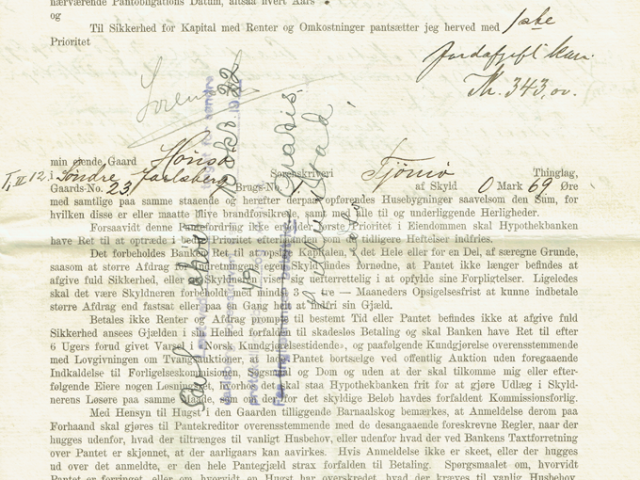 nærværende Pantobligations Datum, altsaa hvert Aars
og
Til Sikkerhed for Kapital med Renter og Omkostninger pantsætter jeg herved med 1ste
Prioritet
Jordafgift kan
Kr. 343,00.
min eiende Gaard
Søndre Jarlsberg Sorenskriveri Tjømø Thinglag,
Gaards-No. 23, Brugs-No. 1, af Skyld 0 Mark 69 Øre
med samtlige paa samme staaende og herefter derpaa opførendes Husebygninger saavelsom den Sum, for
hvilken disse er eller maatte blive brandforsikrede, samt med alle til og underliggende Herligheder.
Forsaavidt denne Pantefordring ikke er eller første Prioritet i Eiendommen skal Hypothekbanken
have Ret til at optræde i bedre Prioritet efterhvert som de tidligere Heftelser indfries.
Det forbeholdes Banken Ret til at opsige Kapitalen, i det Hele eller for en Del, af særegne Grunde,
saasom at større Afdrag paa Forretningen eget Skyld findes fornødne, at Pantet ikke længer befindes at
afgive fuld Sikkerhed, eller at Skyldneren viser sig uefterrettelig i at opfylde sine Forpligtelser. Ligeledes
skal det være Skyldneren forbeholdt med mindst 3 — tre — Maaneders Opsigelsesfrist at kunne indbetale
større Afdrag end fastsat eller paa en Gang helt at indfri sin Gjæld.
Betales ikke Renter og Afdrag promte til bestemt Tid eller Pantet befindes ikke at afgive fuld
Sikkerhed ansees Gjælden i sin Helhed forfalden til skadesløs Betaling og skal Banken have Ret til efter
6 Ugers forud givet Varsel i «Norsk Kundgjørelsestidende», og paafølgende Kundgjørelse overensstemmende
med Lovgivningen om Tvangsauktioner, at lade Pantet bortsælge ved offentlig Auktion uden foregaaende
Indkaldelse til Forligelseskommission, Søgsmaal og Dom og uden at der skal tilkomme mig eller efter-
følgende Eiere nogen Løsningsret, hvorhos det skal staa Hypothekbanken frit for at gjøre Udlæg i Skyld-
nerens Løsøre paa samme Maade, som om der for det skyldige Beløb havdes forfaldent Kommissionsforlig.
Med Hensyn til Hugst i den Gaarden tilliggende Barnaalskog bemærkes, at Anmeldelse derom paa
Forhaand skal gjøres til Pantekreditor overensstemmende med de desangaaende foreskrevne Regler, naar der
hugges udenfor, hvad der tiltrænges til vanligt Husbehov, eller udenfor hvad der ved Bankens Taxtforretning
over Pantet er skjønnet, at der aarligaars kan aavirkes. Hvis Anmeldelse ikke er skeet, eller der hugges
ud over det anmeldte, er den hele Pantegjæld strax forfalden til Betaling. Spørgsmaalet om, hvorvidt
Pantet er forringet, eller om hvorvidt en Hugst har overskredet, hvad der kræves til vanlig Husbehov